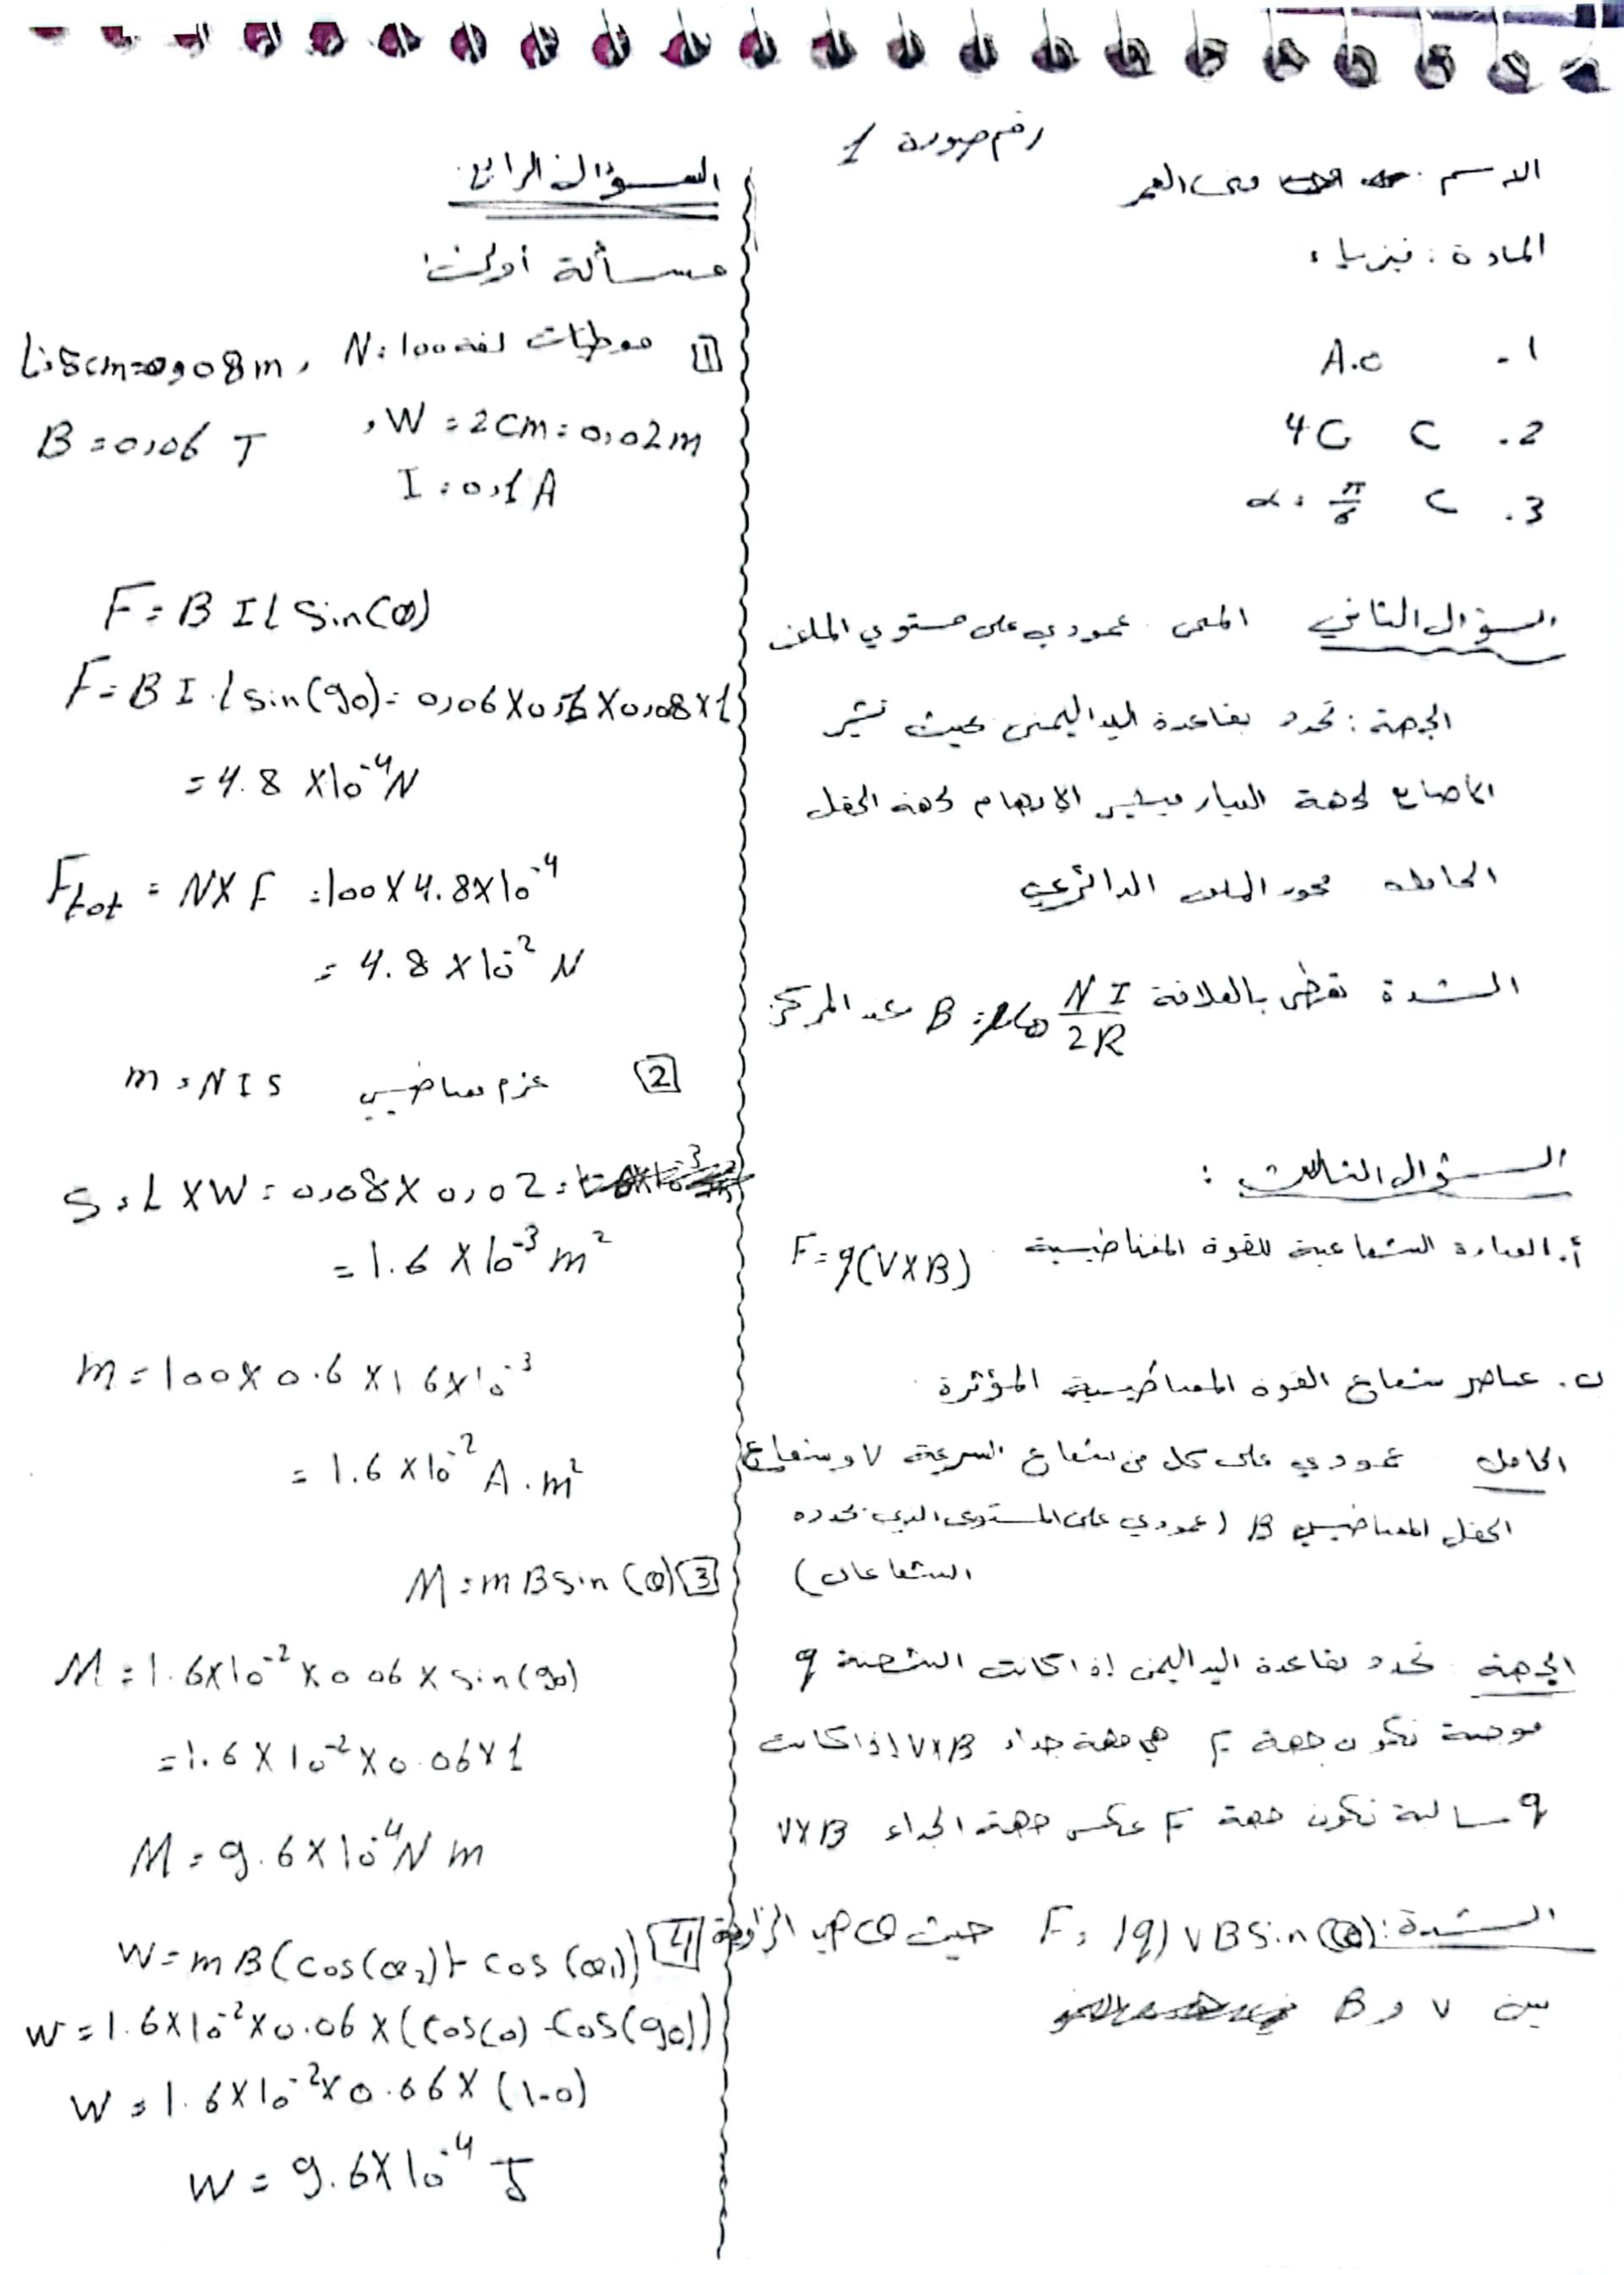 رقم صورة 1
الاسم: منى العمر
المادة: فيزياء
1. A.c
2. C 4C
3. C α = π/6
السؤال الثاني المنحى عمودي على مستوي الملف
الجهة: تحدد بقاعدة اليد اليمنى بحيث تشير
الأصابع لجهة التيار ويشير الإبهام لجهة الحقل
الحامل محور الملف الدائري
الشدة تعطى بالعلاقة B = μ0 NI/2R عند المركز
السؤال الثالث:
أ. العبارة الشعاعية للقوة المغناطيسية F=q(V×B)
ب. عناصر شعاع القوة المغناطيسية المؤثرة
الحامل عمودي على كل من شعاع السرعة V وشعاع
الحقل المغناطيسي B (عمودي على المستوى الذي تحدده
الشعاعان)
الجهة تحدد بقاعدة اليد اليمنى إذا كانت الشحنة q
موجبة تكون جهة F هي جهة جداء V×B إذا كانت
q سالبة تكون جهة F عكس جهة الجداء V×B
الشدة: F = |q| V B Sin(θ) حيث θ هي الزاوية
بين V و B
السؤال الرابع
مسألة أولى:
1 معطيات لفة N=100 , L=8cm=0,08m
, W=2cm=0,02m B=0,06 T
I=0,1A
F=B I L Sin(θ)
F=B I.L sin(90)=0,06×0,1×0,08×1
=4.8×10^-4 N
Ftot = N×F =100×4.8×10^-4
= 4.8×10^-2 N
2 عزم مغناطيسي m=NIS
S=L×W=0,08×0,02=
=1.6×10^-3 m²
m=100×0.6×1 6×10^-3
=1.6×10^-2 A.m²
3 M=mBsin(θ)
M=1.6×10^-2×0 06×sin(90)
=1.6×10^-2×0.06×1
M=9.6×10^-4 N m
4 W=mB(cos(α2)+cos(α1))
W=1.6×10^-2×0.06×(cos(0)-cos(90))
W=1.6×10^-2×0.06×(1-0)
W=9.6×10^-4 J